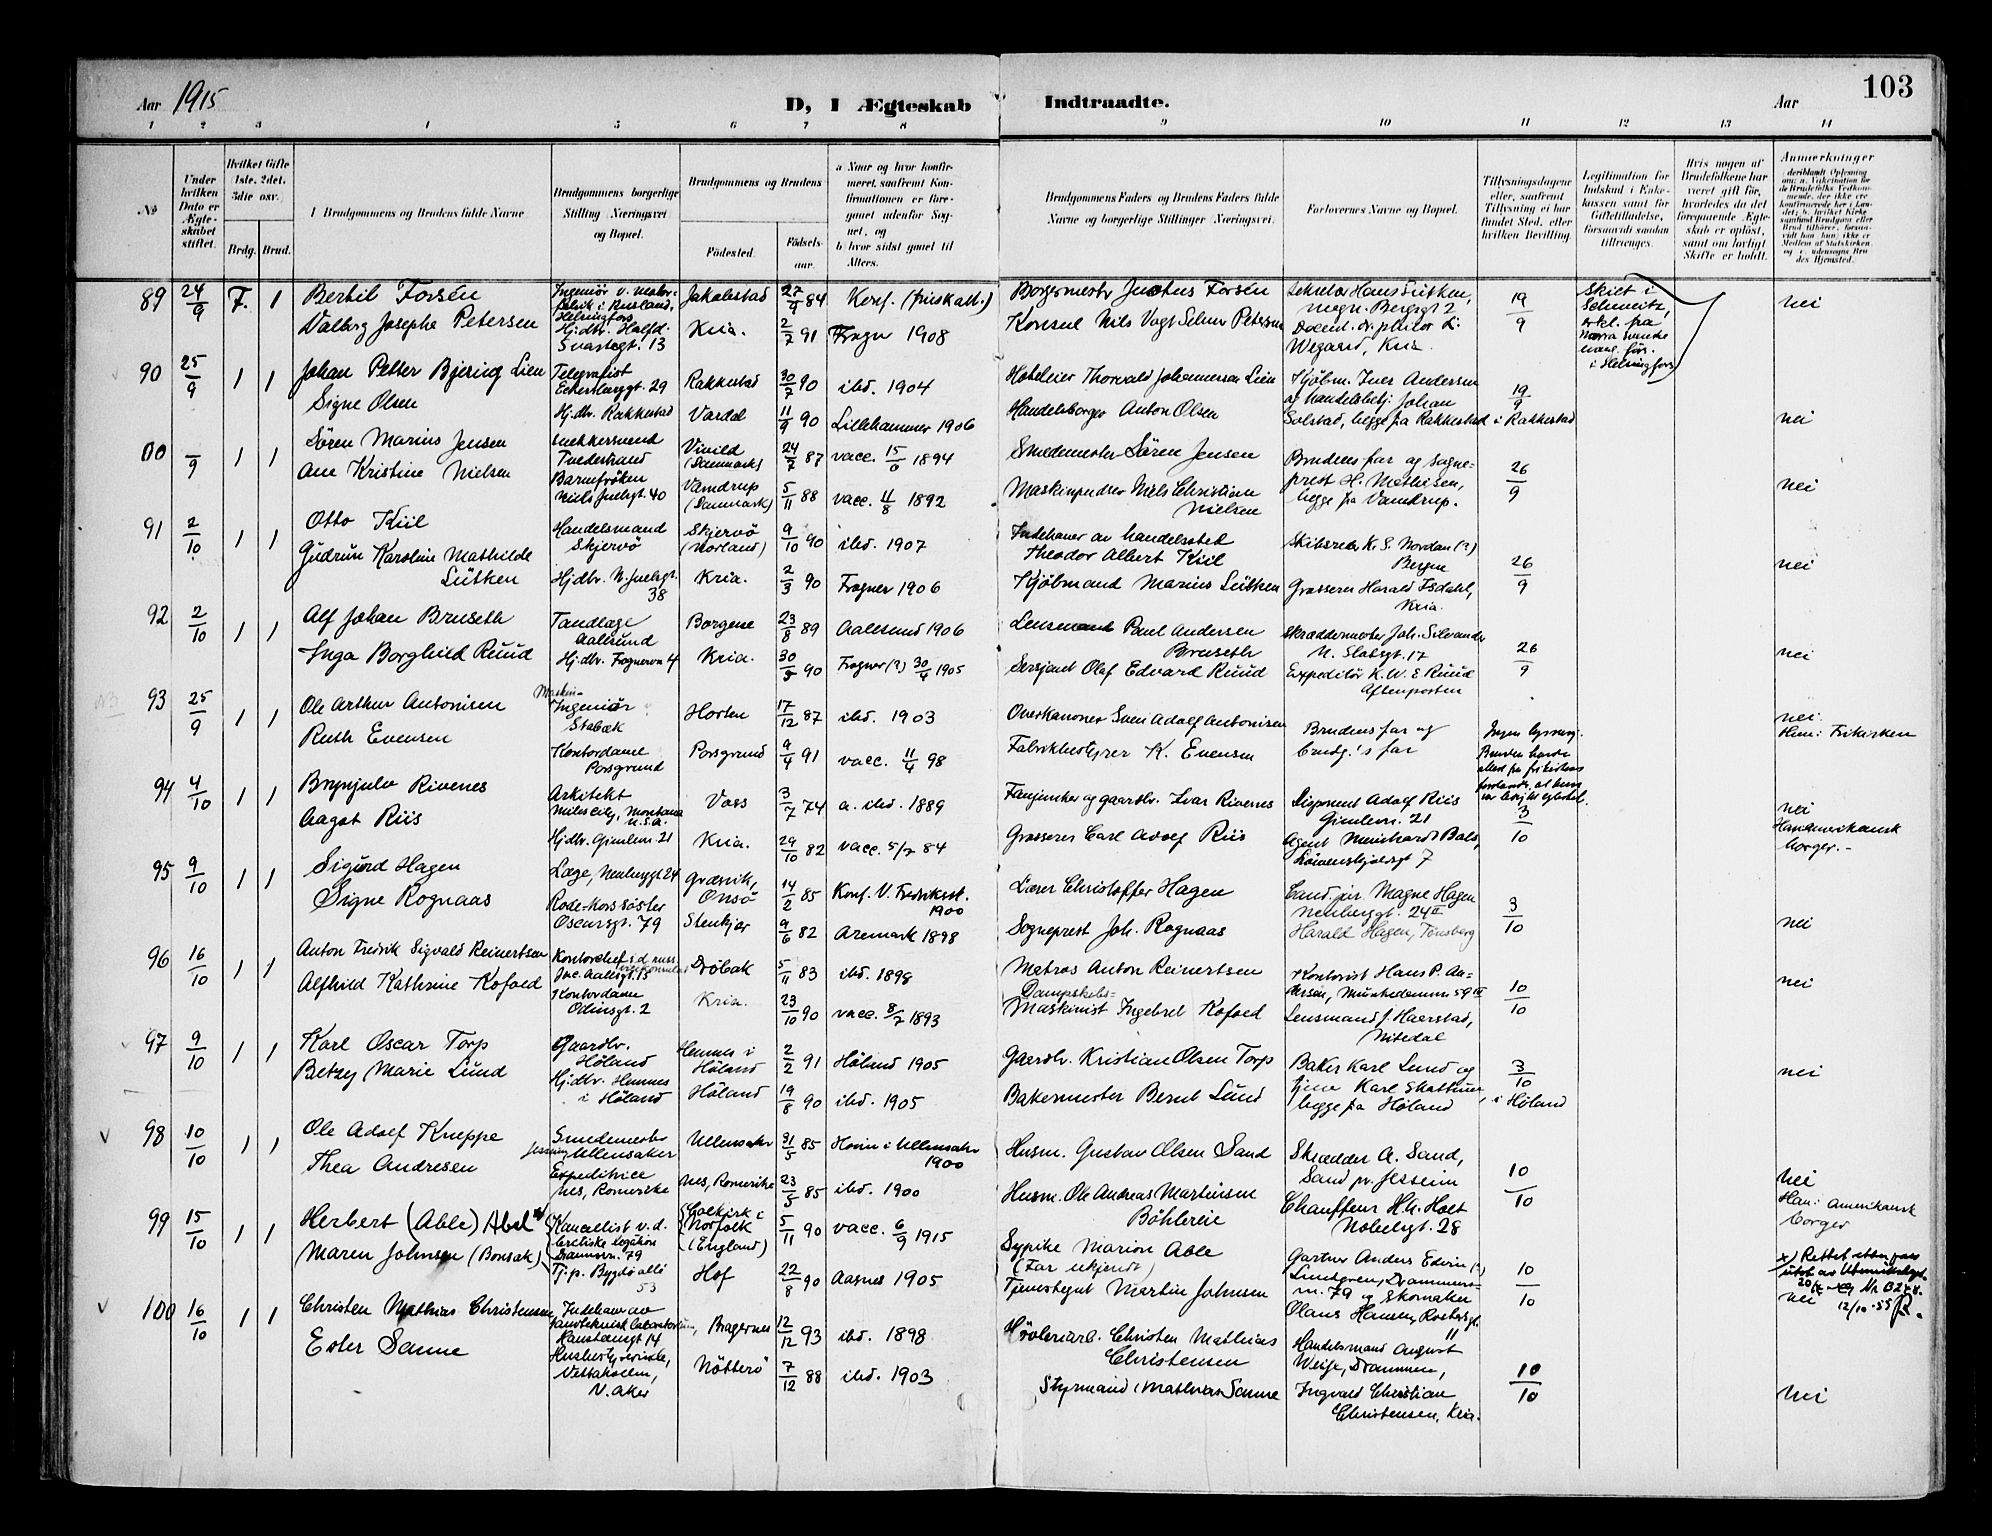 103
Aar 1915
D, I Ægteskab Indtraadte.
Aar
1 2 3 4 5 6 7 8 9 10 11 12 13 14
No
Under hvilken Dato er Ægteskabet stiftet.
Hvilket Gifte 1ste. 2det. 3die osv.
Brdg. Brud.
Brudgommens og Brudens fulde Navne
Brudgommens borgerlige Stilling Næringsvei og Bopæl.
Brudgommens og Brudens
Fødested.
Fødselsaar.
a Naar og hvor konfirmeret, saafremt Konfirmationen er foregaaet udenfor Sognet, og
b hvor sidst gaaet til Alters.
Brudgommens Faders og Brudens Faders fulde Navne og borgerlige Stillinger Næringsvei.
Forlovernes Navne og Bopæl.
Tillysningsdagene eller, saafremt Tillysning ei har fundet Sted, efter hvilken Bevilling
Legitimation for Indskud i Enkekassen samt for Giftetilladelse, forsaavidt saadan tiltrænges.
Hvis nogen af Brudefolkene har været gift før, hvorledes da det foregaaende Ægteskab er opløst, samt om lovligt Skifte er holdt.
Anmerkninger
89 24/9 F. 1
Bertil Forsén
Helsingfors
Jakobstad 27/9 84
Borgermestr Justus Forsén
Sekretær Hans Lütken,
19/9
Skilt i
nei
Valborg Josepha Petersen
Hjdbv. Halfd. Svartesgt. 13
Kria. 2/7 91 Frogn 1908
Konsul Nils Vogt
Docent. dr. philos
90 25/9 1 1
Johan Petter Bjering Lien
Telegrafist
Eckersberggt. 29
Rakkestad 30/7 90 ibd. 1904
Hoteleier Thorvald Johannessen Lien
Kjøbm. Iver Andersen
og handelsbetj. Johan
19/9
Signe Olsen
Hjdbv. Rakkestad
Vardal 11/9 90 Lillehammer 1906
Handelsborger Anton Olsen
Solstad, begge fra Rakkestad i Rakkestad
nei
00 /9 1 1
Søren Marius Jensen
Snekkersvend
Tvedestrand
Vivild (Danmark)
24/7 87 vacc. 1894
Smedemester Søren Jensen
Brudens far og sogneprest H. Mathisen,
begge fra Vamdrup.
26/9
nei
Ane Kristine Nielsen
Barnefrøken
Niels Juelsgt. 40
Vamdrup (Danmark)
5/11 88 vacc. 11/8 1892
Maskinpudser Niels Christian Nielsen
91 2/10 1 1
Otto Kiil
Handelsmand
Skjervö
Skjervö (Norland)
9/10 90 ibd. 1907
Indehaver av handelssted
Theodor Albert Kiil
Skibsreder K. S. Nordan (?)
Bergen
26/9
nei
Gudrun Karoline Mathilde
Lütken
Hjdbv. N. Juelsgt. 38
Kria. 2/3 90 Frogner 1906
Kjöbmand Marius Lütken
Grosserer Harald Isdahl,
Kria.
92 2/10 1 1
Alf Johan Bruseth
Tandlæge
Aalesund
Borgund 23/8 89 Aalesund 1906
Lensmand Paul Andersen
Bruseth
Skræddermester Joh. Silvander
26/9
nei
Inga Borghild Ruud
Hjdbv. Frognervn 4
Kria. 30/9 90 Frogner (?) 30/4 1905
Sersjant Olaf Edvard Ruud
Expeditör K. W. E Ruud
Aftenposten
93 25/9 1 1
Ole Arthur Antonisen
Maskin-
Ingeniør
Stabæk
Horten 17/12 87 ibd. 1903
Overkanoner Sven Adolf Antonisen
Brudens far og
brudg.'s far
Ingen lysning.
nei.
Han: Frikirken
Ruth Evensen
Kontordame
Porsgrund
Porsgrund 9/4 91 vacc. 11/4 98
Fabrikbestyrer K. Evensen
94 4/10 1 1
Brynjulv Rivenes
Arkitekt
Miles City, Montana
U.S.A.
Voss 3/7 74 a. ibd. 1889
Fanejunker og gaardbr. Ivar Rivenes
Sigmund Adolf Riis
Gimlevn. 21
3/10
nei
Han amerikansk
borger.
Aagot Riis
Hjdbv. Gimlevn. 21
Kria. 29/10 82 vacc. 5/7 84
Grosserer Carl Adolf Riis
Agent Meinhardt Bals,
Løvenskjoldsgt 7
95 9/10 1 1
Sigurd Hagen
Læge, Neuberggt 24
Græsvik,
Onsö
14/2 85 Konf. V. Fredrikst.
1900
Lærer Christoffer Hagen
Cand. jur. Magne Hagen
Neuberggt. 24 II
3/10
nei
Signe Rognaas
Røde-kors söster
Oscarsgt. 79
Stenkjær 9/6 82 Aremark 1898
Sogneprest Joh. Rognaas
Harald Hagen, Tönsberg
96 16/10 1 1
Anton Fredrik Sigvald Reinertsen
Kontorchef
Dröbak 5/11 83 ibd. 1898
Matros Anton Reinertsen
Kontorist Hans P. Andersen, Munkedamsvn. 59 III
10/10
nei
Alfhild Kathrine Kofoed
Kontordame
Odinsgt. 2
Kria. 23/10 90 vacc. 8/7 1893
Dampskibs-
Maskinist Ingebret Kofoed
Lensmand J. Haerstad,
Nitedal
97 9/10 1 1
Karl Oscar Torp
Gaardbr.
Höland
Hemnes i
Höland
2/2 91 Höland 1905
Gaardbr. Kristian Olsen Torp
Baker Karl Lund og
3/10
nei
Betzy Marie Lund
Hjdbv. Hemnes
i Höland
Höland 19/8 90 ibd. 1905
Bakermester Bernt Lund
Karl Skattum,
begge fra Höland
i Höland
98 10/10 1 1
Ole Adolf Kneppe
Smedemester
Jessum Ullensaker
Ullensaker 31/5 85 Hovin i Ullensaker
1900
Husm. Gustav Olsen Sand
Skrædder A. Sand,
Sand pr. Jesseim
10/10
nei
Thea Andresen
Expeditrice
Nes, Romerike
Nes, Romerike 23/5 85 ibd. 1900
Husm. Ole Andreas Martinsen
Böhlereie
Chauffeur H. Holt
Nobelsgt. 28
99 15/10 1 1
Herbert (Able) Abel x)
Kancellist v. d.
britiske legation
Drammensv. 79
Colkirk i
Norfolk
(England)
5/11 90 vacc. 6/9 1915
Sypike Marion Able
(Far ukjendt)
Gartner Anders Edvin (?)
Lundgren, Drammensvn. 79 og Skomaker
10/10
Han: Amerikansk
borger
Maren Johnsen (Bonsak)
Tj.p. Bygdö allé
53
Hof 22/8 90 Aasnes 1905
Tjenestegut Martin Johnsen
Olaus Hansen,
nei
12/10-55
100 16/10 1 1
Christen Mathias Christensen
Indehaver av
tandteknisk laboratorium,
14
Bragernes 12/12 93 ibd. 1898
Høvleriarb. Christen Mathias
Christensen
Handelsmand August
Drammen,
10/10
nei
Ester Sanne
Husbestyrerinde,
Vettakollen,
V. Aker
Nötterö 7/12 88 ibd. 1903
Styrmand Mathias Sanne
Ingvald Christian
Christensen, Kria.